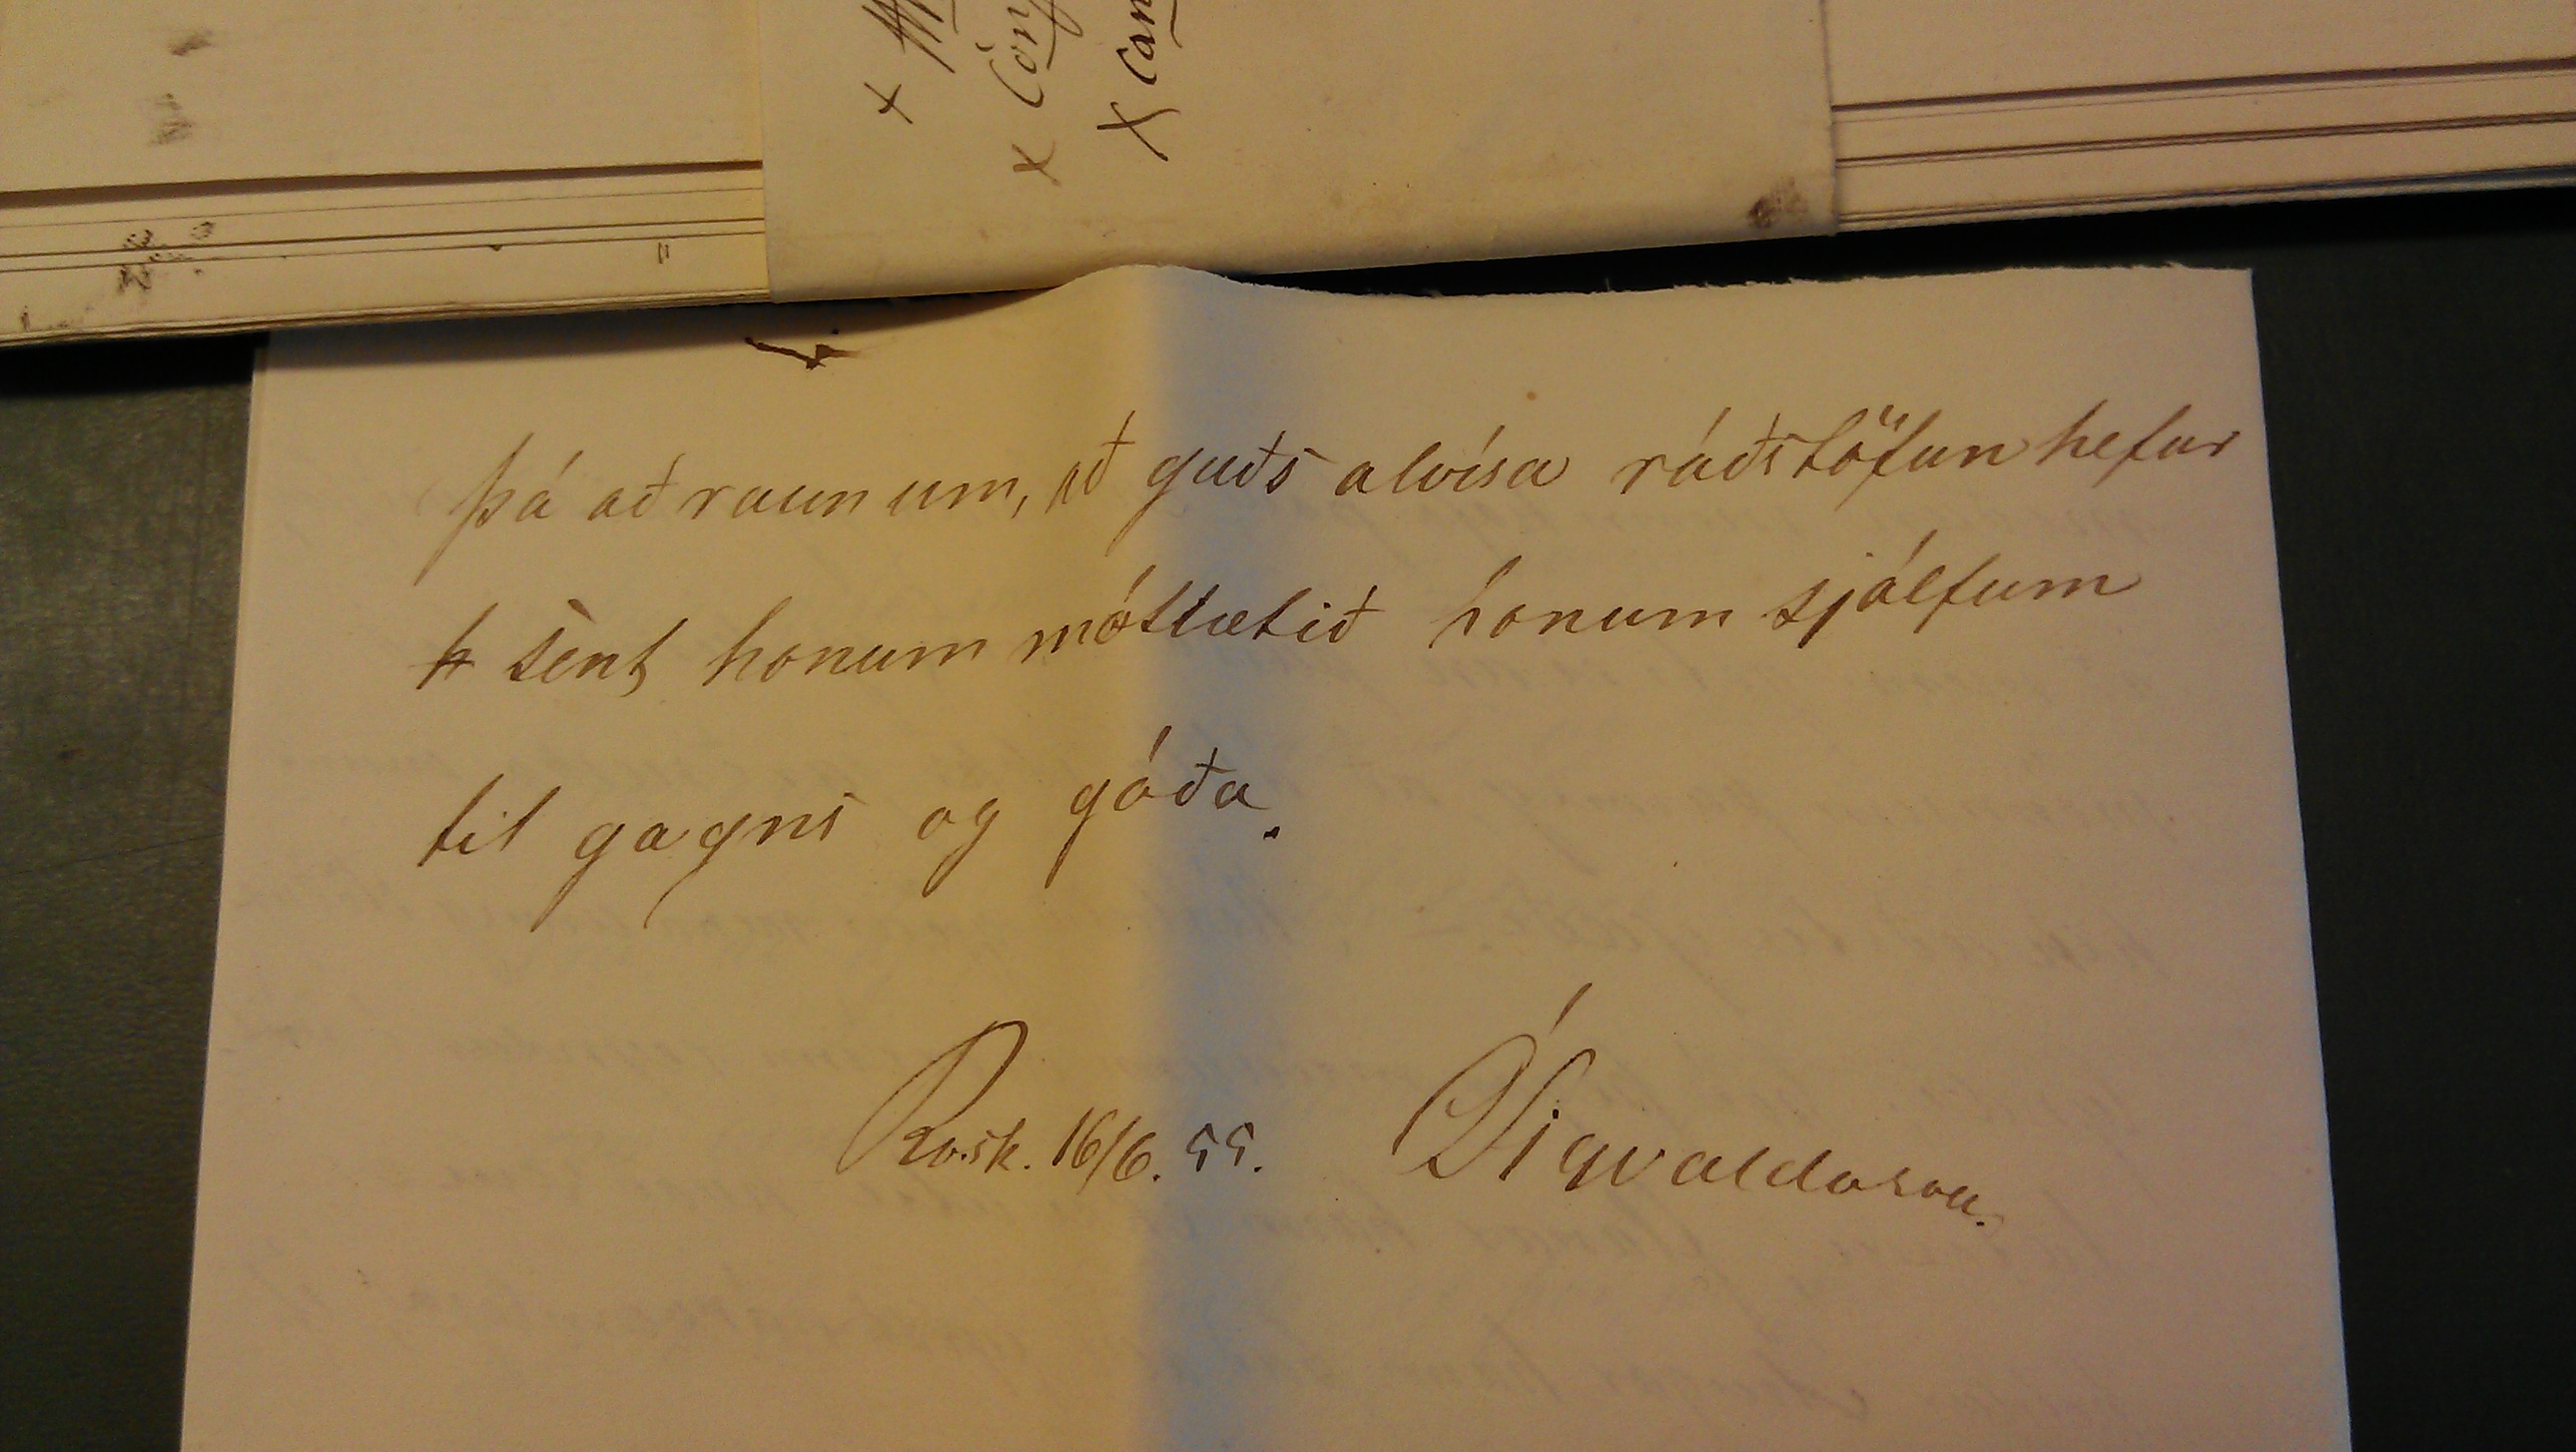 x
x Con
x can
þá að raun um, að guðs alvísa ráðstöfun hefur
sent honum mótlætið honum sjálfum
til gagns og góða.
Rvik. 16/6. 55. ÓSigvaldason.